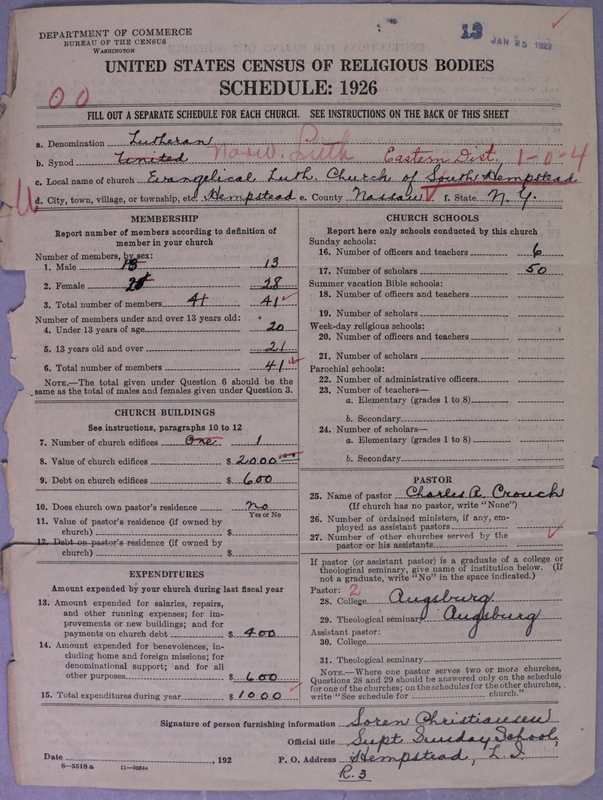 DEPARTMENT OF COMMERCE
BUREAU OF THE CENSUS
WASHINGTON
13 JAN 25 1927
UNITED STATES CENSUS OF RELIGIOUS BODIES
SCHEDULE: 1926
00
FILL OUT A SEPARATE SCHEDULE FOR EACH CHURCH. SEE INSTRUCTIONS ON THE BACK OF THIS SHEET
a. Denomination Lutheran
b. Synod United Norw. Luth Eastern Dist. 1-0-4
c. Local name of church Evangelical Luth. Church of South Hempstead
d. City, town, village, or township, etc. Hempstead e. County Nassau f. State N. Y.
MEMBERSHIP
Report number of members according to definition of
member in your church
Number of members, by sex:
1. Male 13 13
2. Female 28 28
3. Total number of members 41 41
Number of members under and over 13 years old:
4. Under 13 years of age 20
5. 13 years old and over 21
6. Total number of members 41
NOTE.—The total given under Question 6 should be
same as the total of males and females given under Question 3.
CHURCH BUILDINGS
See instructions, paragraphs 10 to 12
7. Number of church edifices One 1
8. Value of church edifices $ 2000
9. Debt on church edifices $ 600
10. Does church own pastor's residence No
Yes or No
11. Value of pastor's residence (if owned by
church) $
12. Debt on pastor's residence (if owned by
church) $
EXPENDITURES
Amount expended by your church during last fiscal year
13. Amount expended for salaries, repairs,
and other running expenses; for im-
provements or new buildings; and for
payments on church debt $ 400
14. Amount expended for benevolences, in-
cluding home and foreign missions; for
denominational support; and for all
other purposes $ 600
15. Total expenditures during year $ 1000
CHURCH SCHOOLS
Report here only schools conducted by this church
Sunday schools:
16. Number of officers and teachers 6
17. Number of scholars 50
Summer vacation Bible schools:
18. Number of officers and teachers
19. Number of scholars
Week-day religious schools:
20. Number of officers and teachers
21. Number of scholars
Parochial schools:
22. Number of administrative officers
23. Number of teachers—
a. Elementary (grades 1 to 8)
b. Secondary
24. Number of scholars—
a. Elementary (grades 1 to 8)
b. Secondary
PASTOR
25. Name of pastor Charles A. Crouch
(If church has no pastor, write "None")
26. Number of ordained ministers, if any, em-
ployed as assistant pastors
27. Number of other churches served by the
pastor or his assistants
If pastor (or assistant pastor) is a graduate of a college or
theological seminary, give name of institution below. (If
not a graduate, write "No" in the space indicated.)
Pastor: 2
28. College Augsburg
29. Theological seminary Augsburg
Assistant pastor:
30. College
31. Theological seminary
NOTE.—Where one pastor serves two or more churches,
Questions 28 and 29 should be answered only on the schedule
for one of the churches; on the schedules for the other churches,
write "See schedule for church."
Signature of person furnishing information Soren Christiansen
Official title Supt Sunday School,
Date , 192 P. O. Address Hempstead, L. I.
8-5518 a R. 3